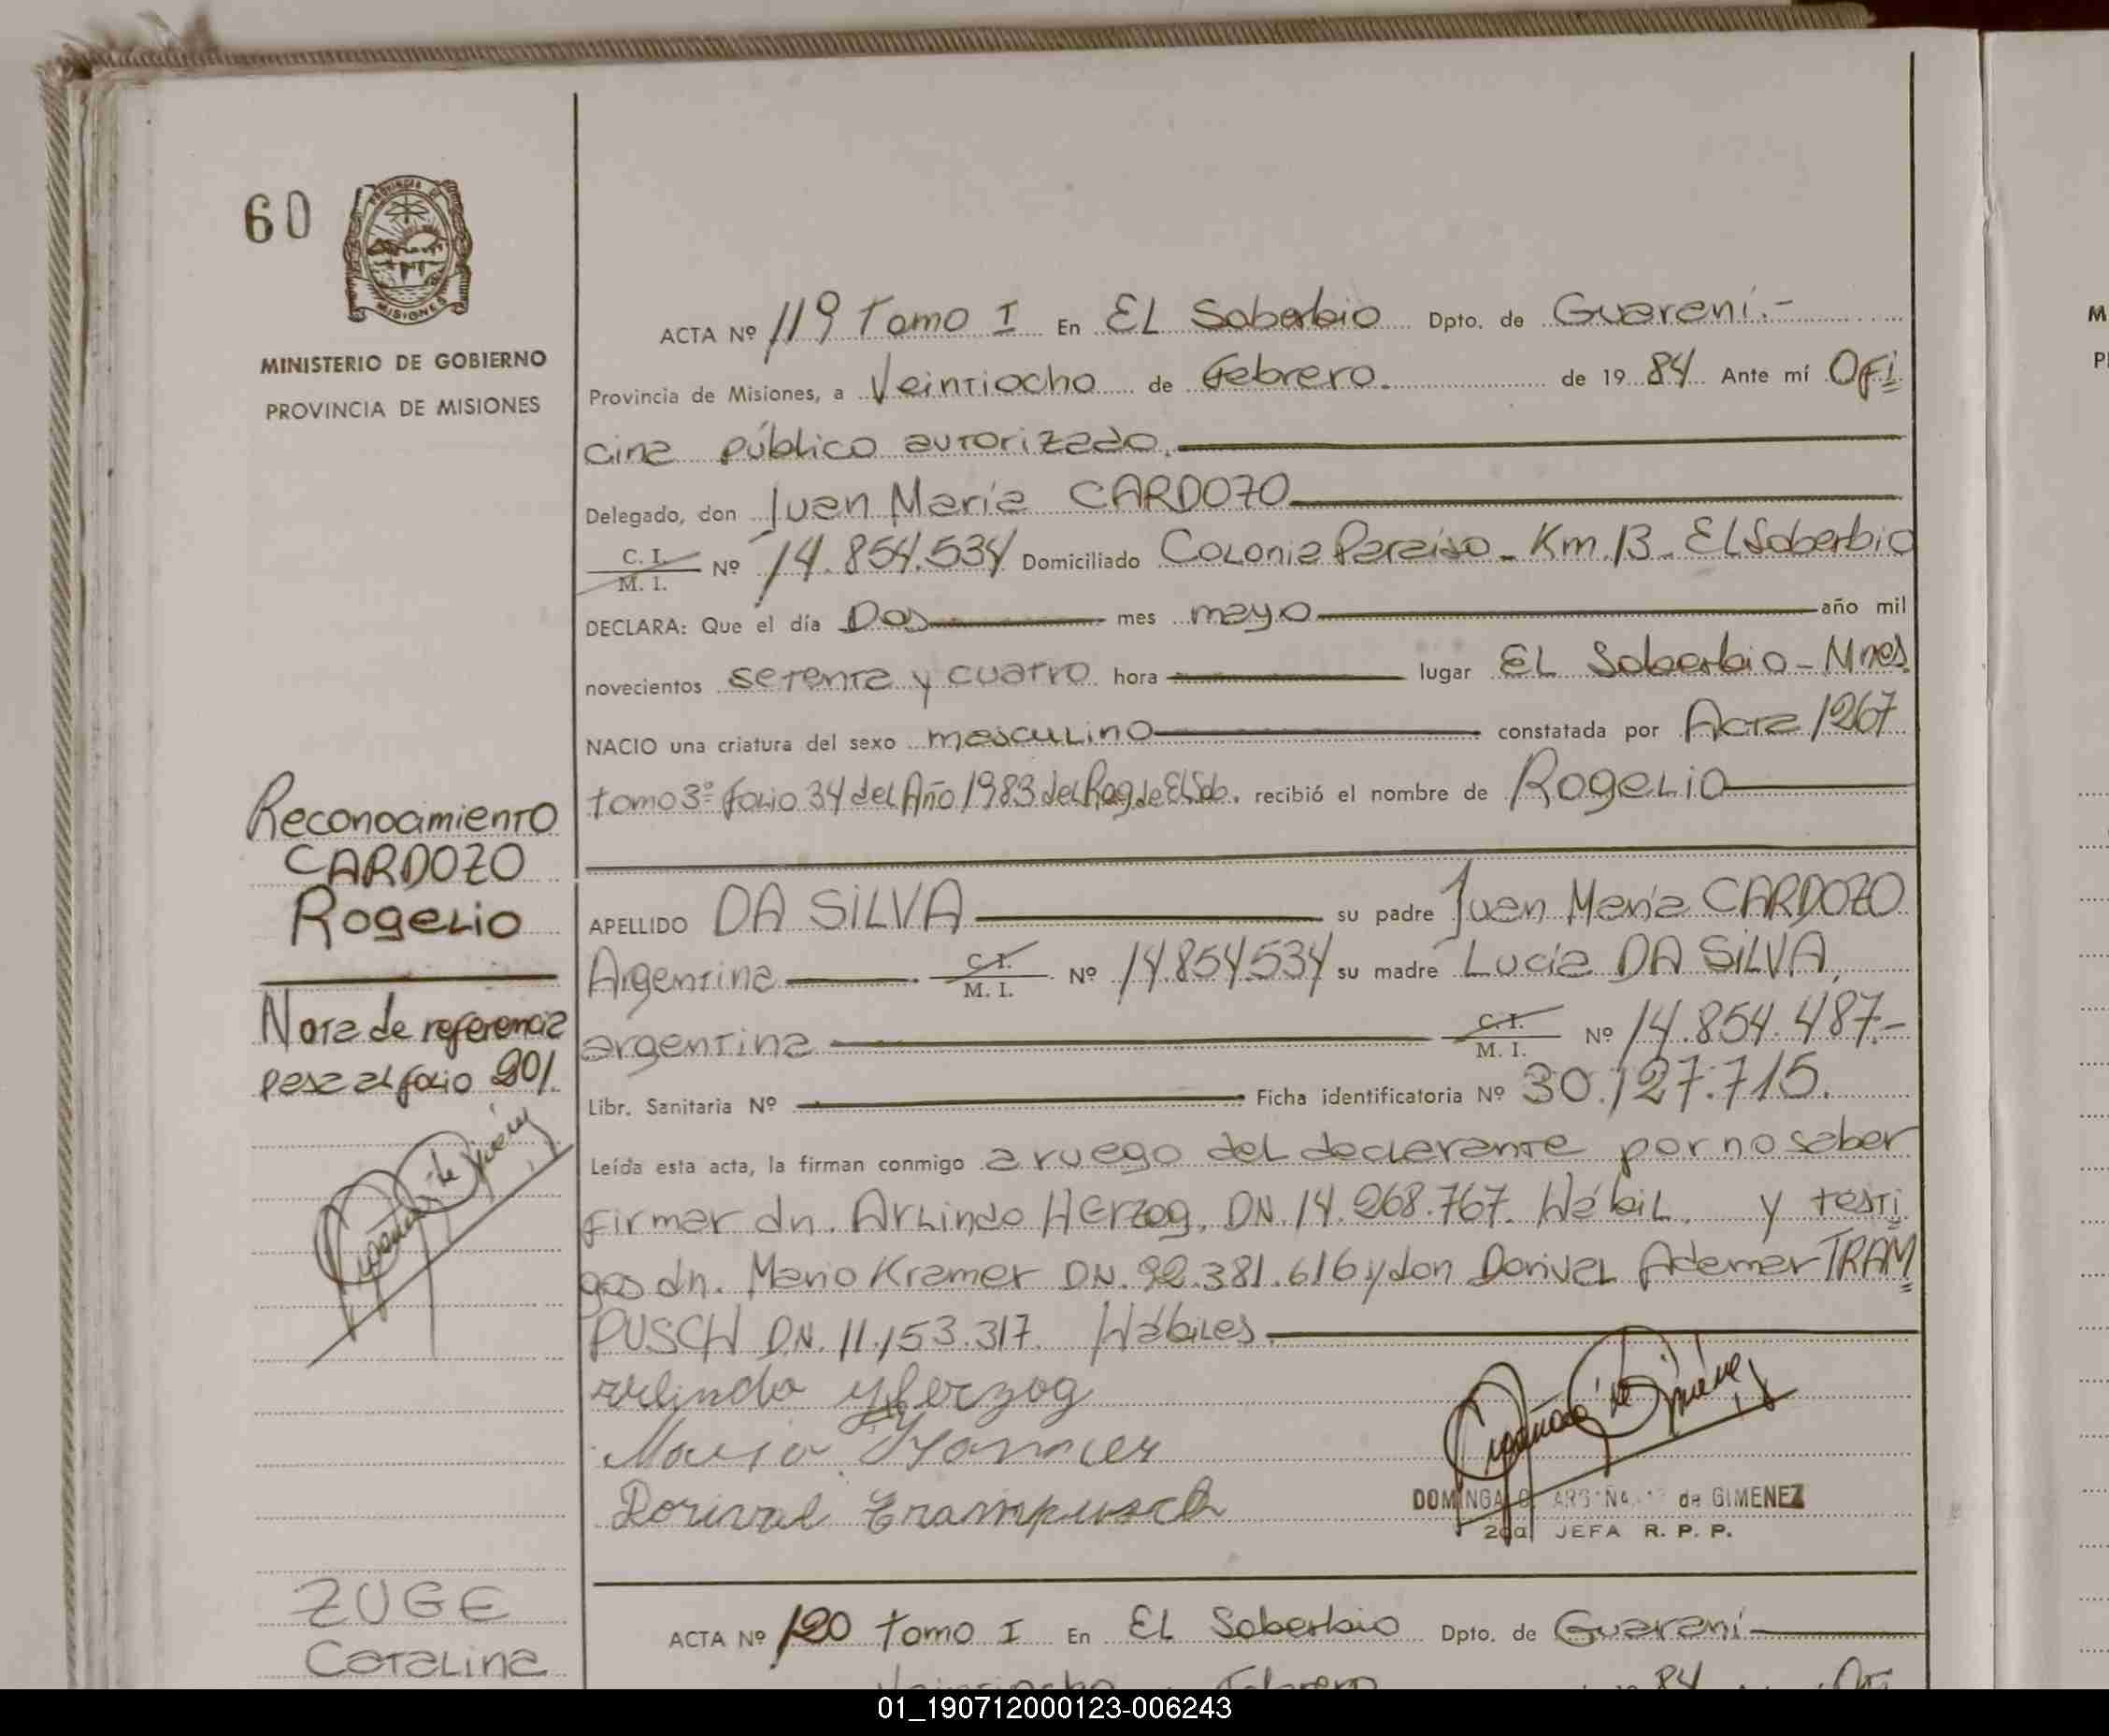 60
MINISTERIO DE GOBIERNO
PROVINCIA DE MISIONES
Reconocimiento
CARDOZO
Rogelio
Nota de referencia
pasa al folio 201.
ACTA Nº 119 Tomo I En EL Soberbio Dpto. de Guaraní.-
Provincia de Misiones, a Veintiocho de Febrero. de 1984 Ante mí Ofi
cina público autorizado.
Delegado, don Juan María CARDOZO
C. I. M. I. Nº 14.854.534 Domiciliado Colonia Paraiso - Km.13 - El Soberbio
DECLARA: Que el día Dos mes mayo año mil
novecientos setenta y cuatro hora lugar EL Soberbio - Mnes.
NACIO una criatura del sexo masculino constatada por Acta 1267
tomo 3º folio 34 del Año 1983 del Reg de El Sob. recibió el nombre de Rogelio
APELLIDO DA SILVA su padre Juan María CARDOZO
Argentina C. I. M. I. Nº 14.854534 su madre Lucía DA SILVA,
argentina C. I. M. I. Nº 14.854.487.-
Libr. Sanitaria Nº Ficha identificatoria Nº 30.127.715.
Leída esta acta, la firman conmigo a ruego del declarante por no saber
firmar dn. Arlindo Herzog, DN. 14.268.767. Hábil. y testi
gos dn. Mario Kramer DN. 92.381.616 y don Dorival Ademar TRAM
PUSCH DN. 11.153.317. Hábiles.
arlindo Herzog
Mario Kramer
Dorival Trampusch
DOMINGA de GIMENEZ
2da JEFA R. P. P.
ZUGE
Catalina
ACTA Nº 120 tomo I En EL Soberbio Dpto. de Guaraní
Veintiocho Febrero 84 Ofi
01_190712000123-006243